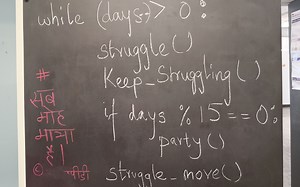 while (days) > 0 :
struggle()
Keep_Struggling()
if days % 15 == 0:
party()
struggle_move()
#
सब
मोह
माया
है।